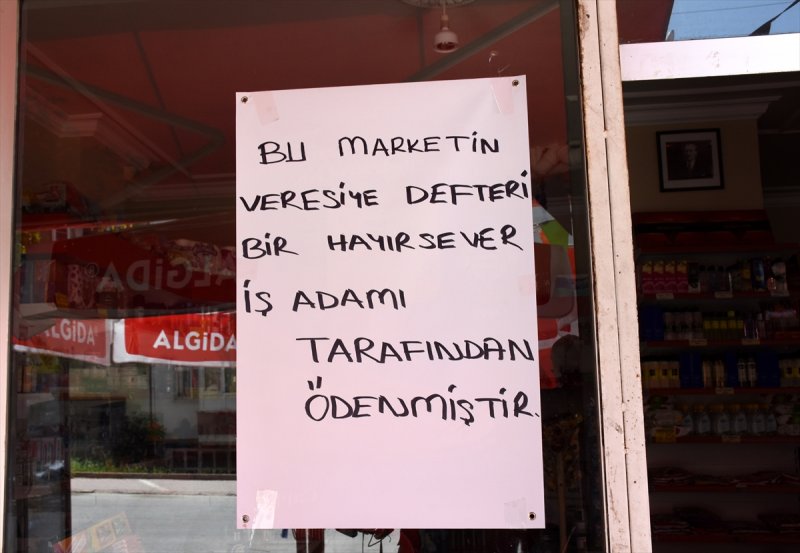 BU MARKETİN
VERESİYE DEFTERİ
BİR HAYIRSEVER
İŞ ADAMI
TARAFINDAN
ÖDENMİŞTİR.
ALGiDA
ALGiDA
ALGiDA